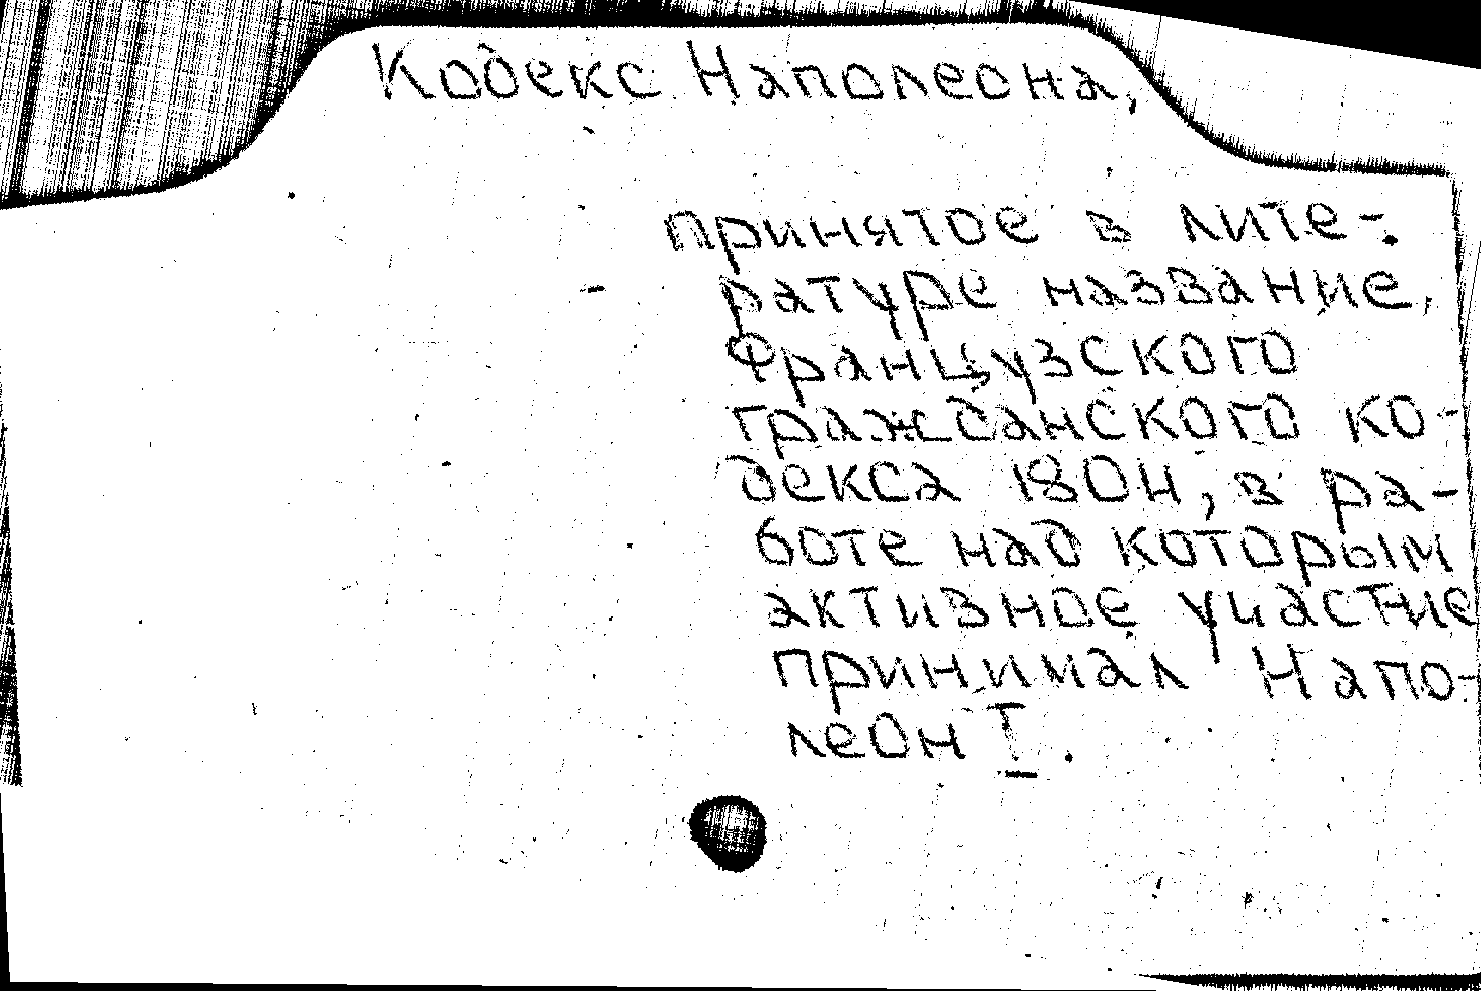 Кодекс Наполеона,
принятое в лите-
ратуре название
Французского
гражданского ко-
декса 1804, в ра-
боте над которым
активное участие
принимал Напо-
леон I.